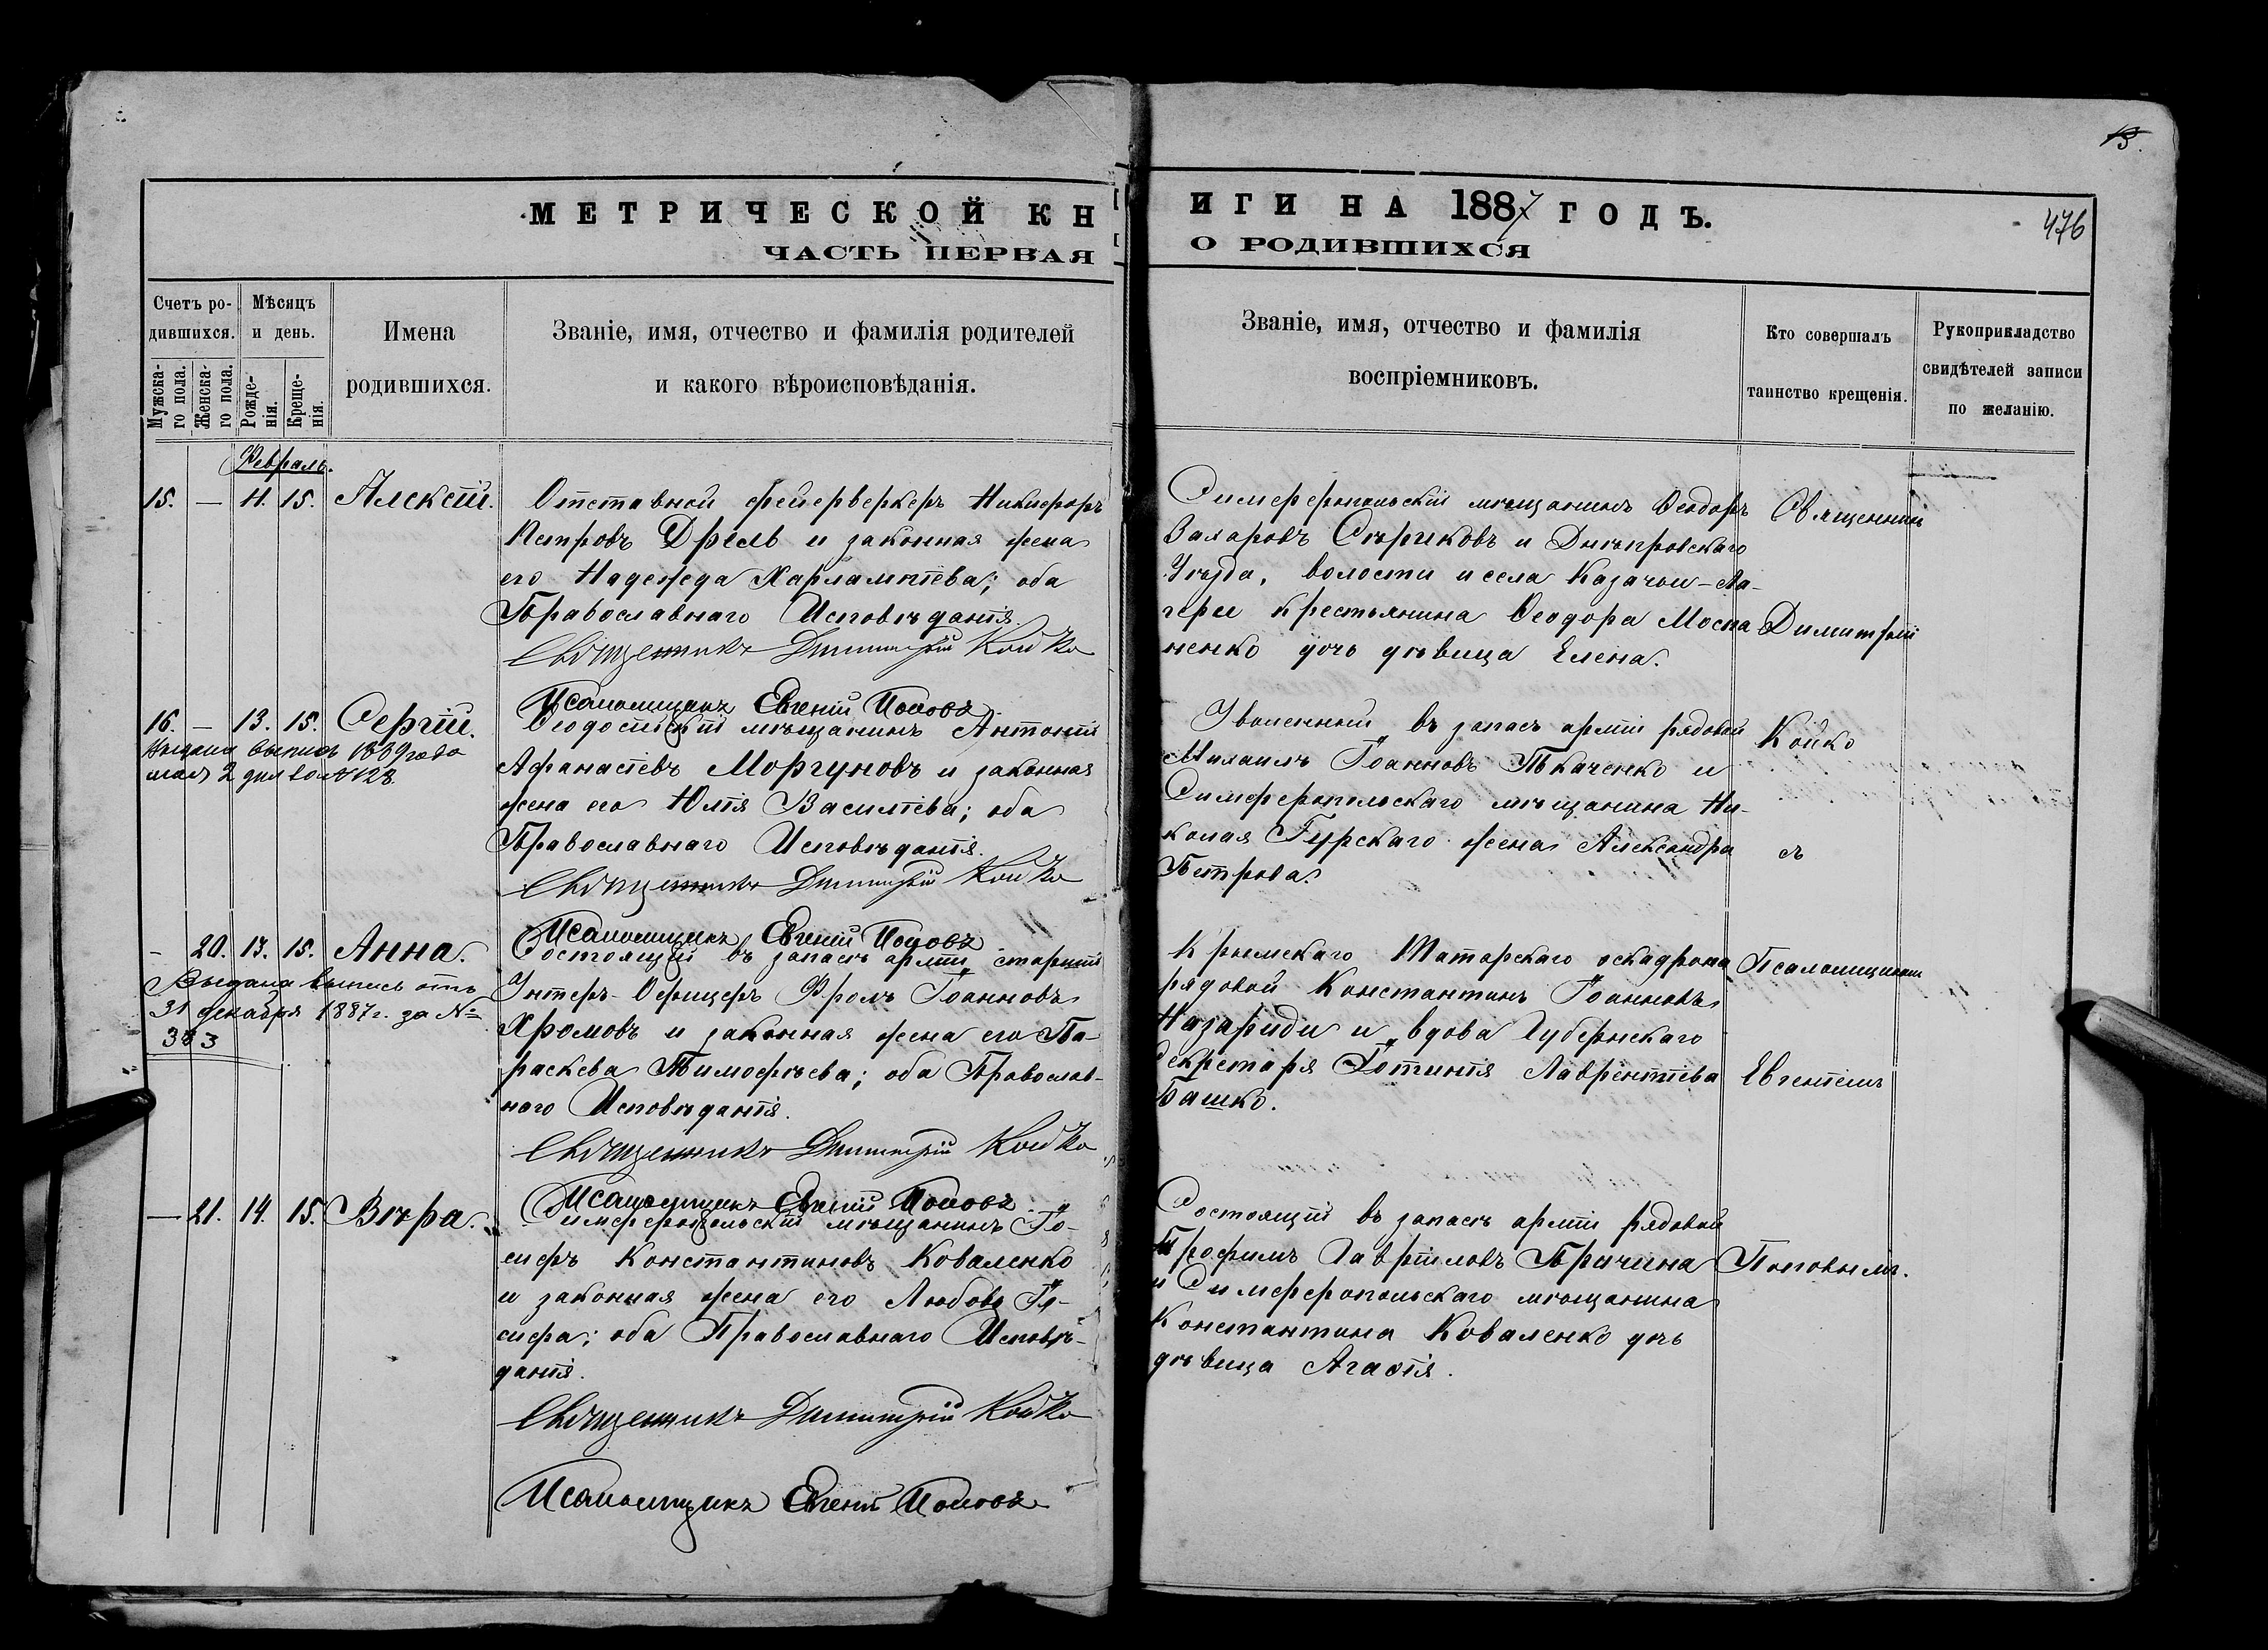 13.
МЕТРИЧЕСКОЙ КНИГИ НА 1887 ГОДЪ.
476
ЧАСТЬ ПЕРВАЯ О РОДИВШИХСЯ
Счетъ ро-
дившихся.
Мужска-
го пола.
Женска-
го пола.
Мѣсяцъ
и день.
Рожде-
нія.
Креще-
нія.
Имена
родившихся.
Званіе, имя, отчество и фамилія родителей
и какого вѣроисповѣданія.
Званіе, имя, отчество и фамилія
воспріемниковъ.
Кто совершалъ
таинство крещенія.
Рукоприкладство
свидѣтелей записи
по желанію.
Февраль.
15. — 11. 15. Алексій.
Отставной фейерверкеръ Никифоръ
Петровъ Дрель и законная жена
его Надежда Харлампіева; оба
Православнаго Исповѣданія.
Священникъ Димитрій Койко
Псаломщикъ Евгеній Поповъ
Симферопольскій мѣщанинъ Ѳеодоръ
Захаровъ Сѣриковъ и Днѣпровскаго
Уѣзда, волости и села Казачьи-Ла-
гери крестьянина Ѳеодора Моспа
ненко дочь дѣвица Елена.
Священникъ
Димитрій
Койко
съ
Псаломщикомъ
Евгеніемъ
Поповымъ.
16. — 13. 15. Сергій.
Выдана выпись 1889 года
мая 2 дня за № 128.
Ѳеодосійскій мѣщанинъ Антоній
Афанасіевъ Моргуновъ и законная
жена его Юлія Василіева; оба
Православнаго Исповѣданія.
Священникъ Димитрій Койко
Псаломщикъ Евгеній Поповъ
Уволенный въ запасъ арміи рядовой
Михаилъ Іоанновъ Ткаченко и
Симферопольскаго мѣщанина Ни-
колая Гурскаго жена Александра
Петрова.
— 20. 13. 15. Анна.
Выдана выпись отъ
31 декабря 1887 г. за №
383
Состоящій въ запасѣ арміи старшій
Унтеръ-Офицеръ Фролъ Іоанновъ
Хромовъ и законная жена его Па-
раскева Тимофѣева; оба Православ-
наго Исповѣданія.
Священникъ Димитрій Койко
Псаломщикъ Евгеній Поповъ
Крымскаго Татарскаго эскадрона
рядовой Константинъ Іоанновъ
Назариди и вдова Губернскаго
Секретаря Фотинія Лаврентіева
Башко.
— 21. 14. 15. Вѣра.
Симферопольскій мѣщанинъ Іо-
сифъ Константиновъ Коваленко
и законная жена его Любовь Іо-
сифа; оба Православнаго Исповѣ-
данія.
Священникъ Димитрій Койко
Псаломщикъ Евгеній Поповъ
Состоящій въ запасѣ арміи рядовой
Трофимъ Гавріиловъ Причина
и Симферопольскаго мѣщанина
Константина Коваленко дочь
дѣвица Агафія.